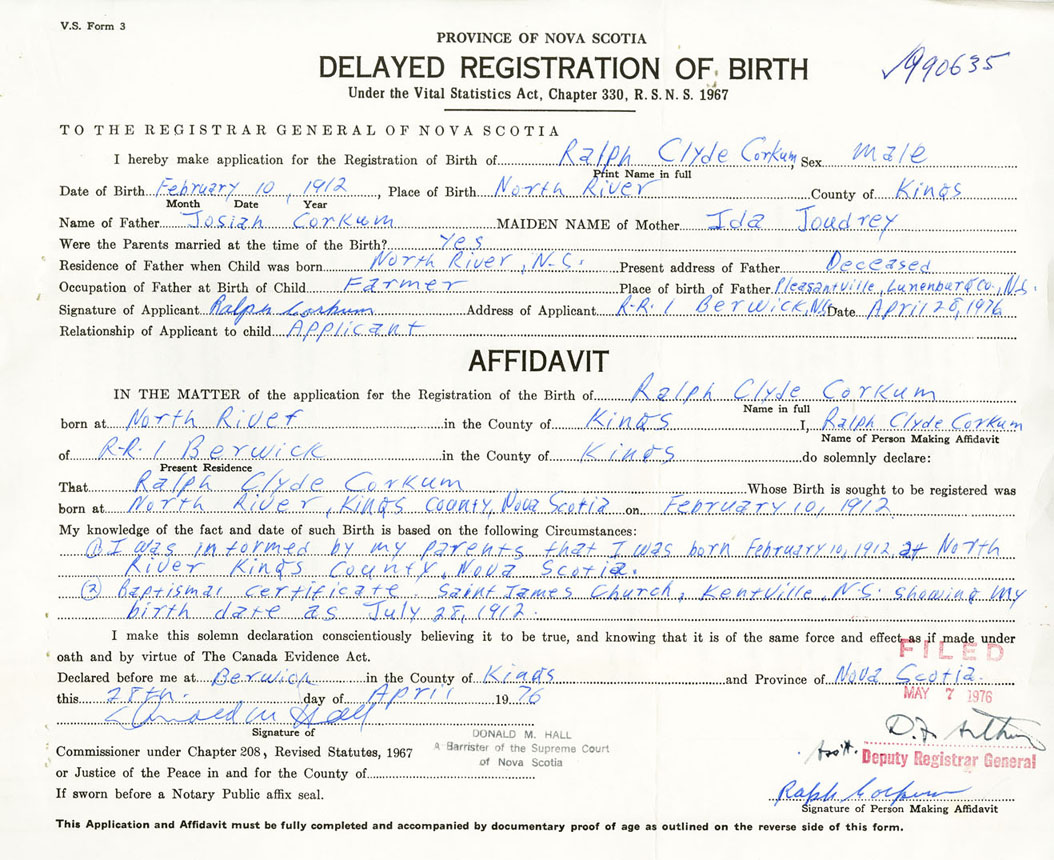 V.S. Form 3
PROVINCE OF NOVA SCOTIA
DELAYED REGISTRATION OF BIRTH
990635
Under the Vital Statistics Act, Chapter 330, R.S.N.S. 1967
TO THE REGISTRAR GENERAL OF NOVA SCOTIA
I hereby make application for the Registration of Birth of Ralph Clyde Corkum, Sex male
Print Name in full
Date of Birth February 10, 1912, Place of Birth North River County of Kings
Month Date Year
Name of Father Josiah Corkum MAIDEN NAME of Mother Ida Joudrey
Were the Parents married at the time of the Birth? Yes
Residence of Father when Child was born North River, N.S. Present address of Father Deceased
Occupation of Father at Birth of Child Farmer Place of birth of Father Pleasantville, Lunenburg Co., N.S.
Signature of Applicant Ralph Corkum Address of Applicant R.R. 1 Berwick, N.S. Date April 28, 1976
Relationship of Applicant to child Applicant
AFFIDAVIT
IN THE MATTER of the application for the Registration of the Birth of Ralph Clyde Corkum
Name in full
born at North River in the County of Kings I, Ralph Clyde Corkum
Name of Person Making Affidavit
of R.R. 1 Berwick in the County of Kings do solemnly declare:
Present Residence
That Ralph Clyde Corkum Whose Birth is sought to be registered was
born at North River, Kings County, Nova Scotia on February 10, 1912
My knowledge of the fact and date of such Birth is based on the following Circumstances:
(1) I was informed by my parents that I was born February 10, 1912 at North
River Kings County, Nova Scotia.
(2) Baptismal certificate Saint James Church, Kentville, N.S. showing my
birth date as July 28, 1912.
I make this solemn declaration conscientiously believing it to be true, and knowing that it is of the same force and effect as if made under
oath and by virtue of The Canada Evidence Act.
FILED
Declared before me at Berwick in the County of Kings and Province of Nova Scotia.
this 28th. day of April 1976
MAY 7 1976
Donald M Hall
Signature of
DONALD M. HALL
A Barrister of the Supreme Court
of Nova Scotia
Commissioner under Chapter 208, Revised Statutes, 1967
Ass't. Deputy Registrar General
or Justice of the Peace in and for the County of
Ralph Corkum
If sworn before a Notary Public affix seal.
Signature of Person Making Affidavit
This Application and Affidavit must be fully completed and accompanied by documentary proof of age as outlined on the reverse side of this form.